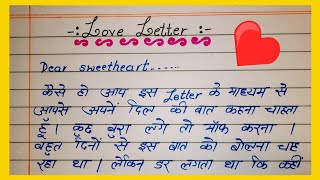 -: Love Letter :-
Dear sweetheart......
कैसे हो आप इस Letter के माध्यम से
आपसे अपने दिल की बात कहना चाहता
हूँ। कुछ बुरा लगे तो मॉफ करना।
बहुत दिनों से इस बात को बोलना चाह
रहा था। लेकिन डर लगता था कि कहीं